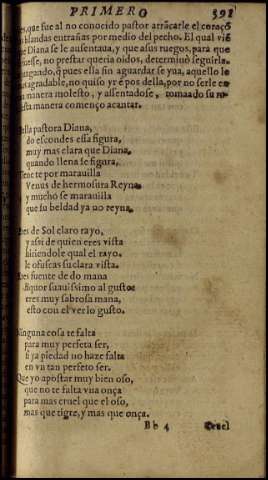 PRIMERO 391
es, que fue al no conocido pastor arrãcarle el coraçõ
blandas entrañas por medio del pecho. El qual viẽ
que Diana se le ausentaua, y que a sus ruegos, para que
no prestar queria oidos, determinò seguirla.
uzgando, q̃ pues ella sin aguardar se yua, aquello le
sagradable, no quiso yr ẽ pos della, por no serle en
na manera molesto, y assentandose, tomado su
esta manera començo a cantar.
ella pastora Diana,
do escondes essa figura,
muy mas clara que Diana,
quando llena se figura,
Tente por marauilla
Venus de hermosura Reyna
y mucho se marauilla
que su beldad ya no reyna.
res de Sol claro rayo,
y assi de quien eres vista
hiriendole qual el rayo.
le ofuscas su clara vista.
Eres fuente de do mana
liquor suauissimo al gusto
tres muy sabrosa mana,
esto con el ver lo gusto.
Ninguna cosa te falta
para muy perfeta ser,
si ya piedad no haze falta
en vn tan perfeto ser.
Que yo apostar muy bien oso,
que no te falta vna onça
para mas cruel que el oso,
mas que tigre, y mas que onça.
Bb 4 Cruel